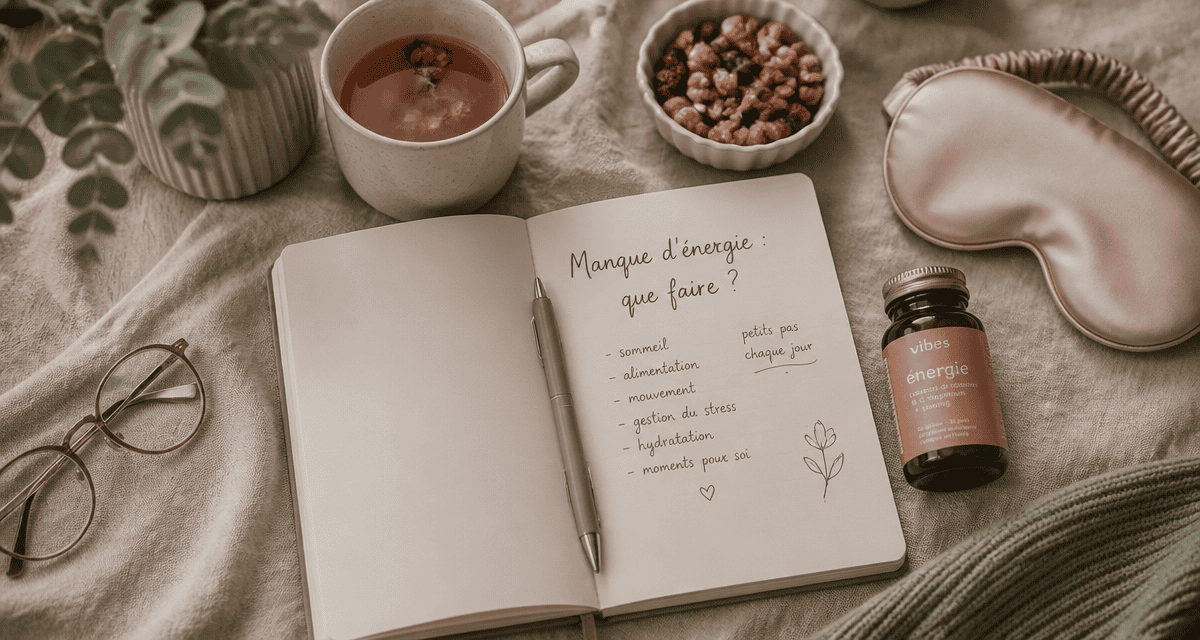 Manque d'énergie :
que faire ?
- sommeil
- alimentation
- mouvement
- gestion du stress
- hydratation
- moments pour soi
petits pas
chaque jour
vibes
énergie